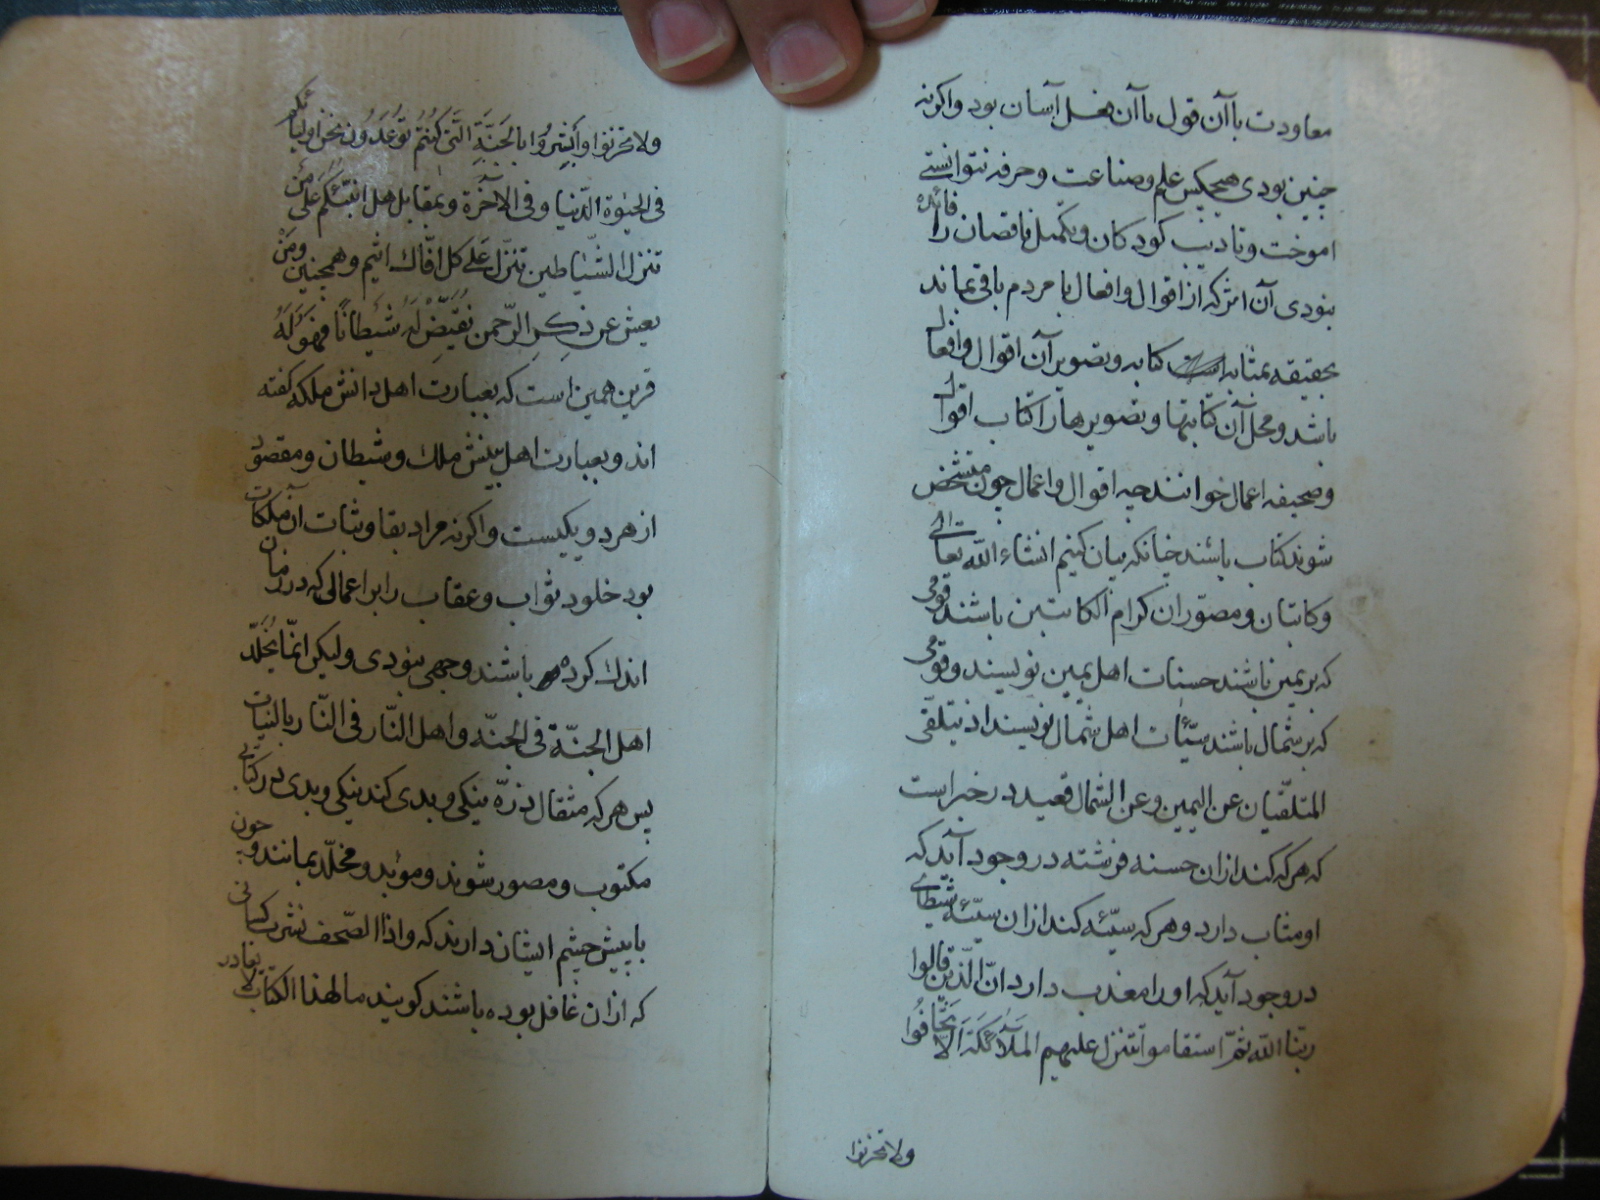 معاودت با آن قول با آن فعل آسان بود واکرنه
چنین بودی هیچکس علم و صناعت و حرفه نتوانستی
اموخت و تادیب کودکان و تکمیل ناقصان را فائده
نبودی آن اثر که از اقوال و افعال با مردم باقی بماند
بحقیقه بمثابه کتابه و تصویر آن اقوال و افعال
باشد و محل آن کتابتها و تصویرها را کتاب اقوال
و صحیفه اعمال خوانند چه اقوال و اعمال چون متشخص
شوند کتاب باشند چنانکه بیان کنیم انشاء الله تعالی
و کاتبان و مصوّران کرام الکاتبین باشند قومی
که بر یمین باشند حسنات اهل یمین نویسند و قومی
که بر شمال باشند سیّئات اهل شمال نویسند اذ یتلقی
المتلقّیان عن الیمین و عن الشمال قعید در خبر است
که هر که کند ازان حسنه فرشته در وجود آید که
او مثاب دارد و هر که سیّئه کند ازان سیّئه شیطانی
در وجود آید که او را معذب دارد انّ الّذین قالوا
ربنا الله ثمّ استقاموا تتنزل علیهم المَلآئکَة اَلاّ تَخَافُوا
ولا تحزنوا
ولا تحزنوا وَاَبْشِرُوا بِالجَنَّةِ الَّتی کُنتُم تُوعَدُونَ نحن اولیاءکم
فی الحیوة الدّنیا و فی الآخرة و بمقابل هل انبّئکم عَلی مَن
تنزل الشّیاطین تنزّل عَلی کل افّاك اثیم و همچنین وَمَنْ
یعش عن ذِکرِ الرّحمن نُقَیّضْ لَهُ شَیطانًا فهوَ لَهُ
قرین همین است که بعبارت اهل دانش ملکه گفته
اند و بعبارت اهل بینش ملك و شیطان و مقصود
از هر دو یکیست و اکرنه مراد بقا و ثبات ان ملکات
بود خلود ثواب و عقاب را بر اعمالی که در زمان
اندك کرده باشند وجهی نبودی و لیکن انّما یُخَلّد
اهل الجنّة فی الجنّه و اهل النّار فی النّار بالنیات
پس هر که مثقال ذرّه نیکی و بدی کند نیکی و بدی در کتابی
مکتوب و مصور شوند و موٴبد و مخلّد بمانند و چون
با پیش چشم ایشان دارند که و اذا الصّحف نشرت کسانی
که ازان غافل بوده باشند کویند ما لهذا الکتاب لا یغادر